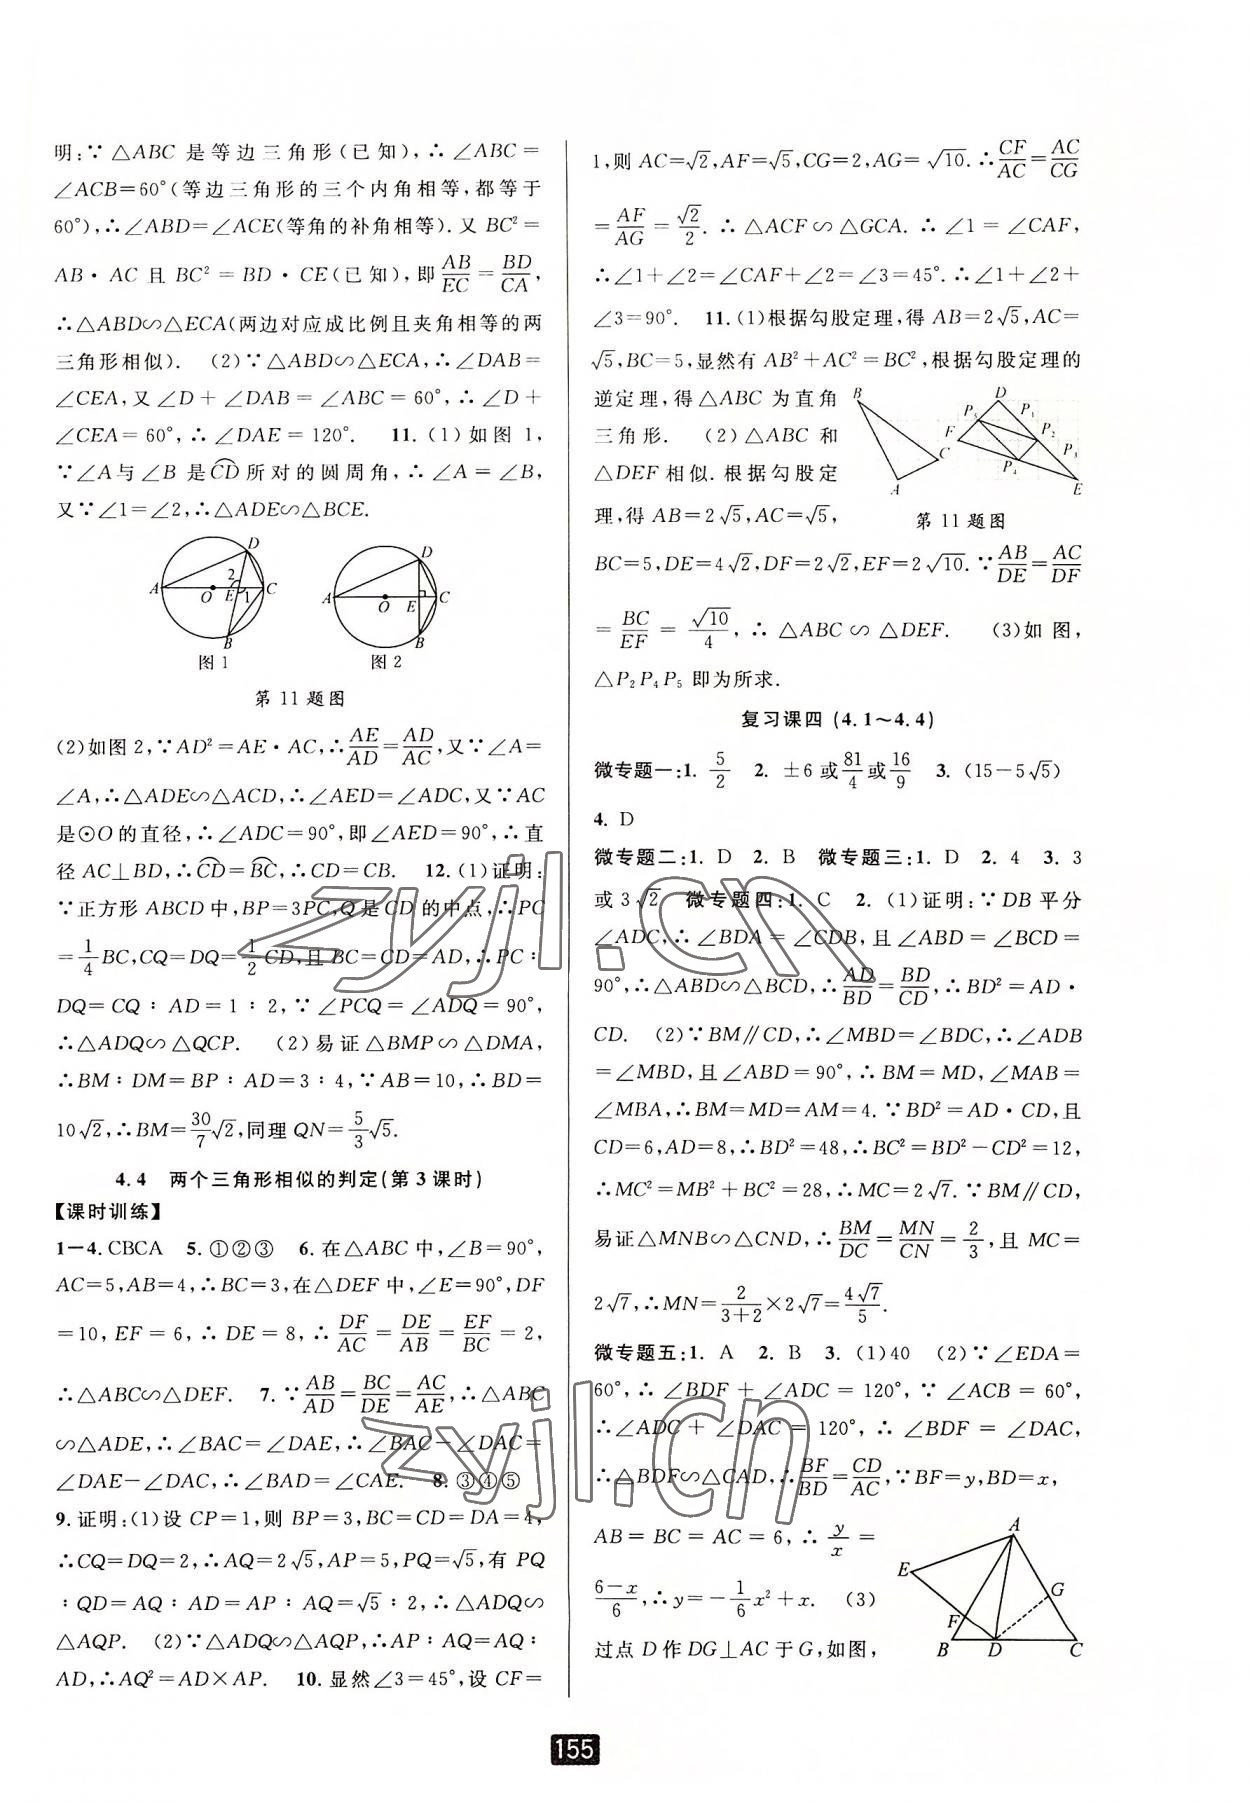 明:∵△ABC 是等边三角形(已知),∴∠ABC=
∠ACB=60°(等边三角形的三个内角相等,都等于
60°),∴∠ABD=∠ACE(等角的补角相等). 又 BC²=
AB·AC 且 BC²=BD·CE(已知),即 AB/EC=BD/CA,
∴△ABD∽△ECA(两边对应成比例且夹角相等的两
三角形相似). (2)∵△ABD∽△ECA,∴∠DAB=
∠CEA,又∠D+∠DAB=∠ABC=60°,∴∠D+
∠CEA=60°,∴∠DAE=120°. 11. (1)如图 1,
∵∠A与∠B 是⌒CD所对的圆周角,∴∠A=∠B,
又∵∠1=∠2,∴△ADE∽△BCE.
D 2 A O E 1 C B
D A O E C B
图 1 图 2
第 11 题图
(2)如图 2,∵AD²=AE·AC,∴AE/AD=AD/AC,又∵∠A=
∠A,∴△ADE∽△ACD,∴∠AED=∠ADC,又∵AC
是⊙O的直径,∴∠ADC=90°,即∠AED=90°,∴直
径 AC⊥BD,∴⌒CD=⌒BC,∴CD=CB. 12. (1)证明:
∵正方形 ABCD 中,BP=3PC,Q 是 CD 的中点,∴PC
=1/4 BC,CQ=DQ=1/2 CD,且 BC=CD=AD,∴PC:
DQ=CQ:AD=1:2,∵∠PCQ=∠ADQ=90°,
∴△ADQ∽△QCP. (2)易证△BMP∽△DMA,
∴BM:DM=BP:AD=3:4,∵AB=10,∴BD=
10√2,∴BM=30/7√2,同理 QN=5/3√5.
4.4 两个三角形相似的判定(第 3 课时)
【课时训练】
1-4. CBCA 5. ①②③ 6. 在△ABC 中,∠B=90°,
AC=5,AB=4,∴BC=3,在△DEF 中,∠E=90°,DF
=10,EF=6,∴DE=8,∴DF/AC=DE/AB=EF/BC=2,
∴△ABC∽△DEF. 7. ∵AB/AD=BC/DE=AC/AE,∴△ABC
∽△ADE,∴∠BAC=∠DAE,∴∠BAC-∠DAC=
∠DAE-∠DAC,∴∠BAD=∠CAE. 8. ③④⑤
9. 证明:(1)设 CP=1,则 BP=3,BC=CD=DA=4,
∴CQ=DQ=2,∴AQ=2√5,AP=5,PQ=√5,有 PQ
:QD=AQ:AD=AP:AQ=√5:2,∴△ADQ∽
△AQP. (2)∵△ADQ∽△AQP,∴AP:AQ=AQ:
AD,∴AQ²=AD×AP. 10. 显然∠3=45°,设 CF=
1,则 AC=√2,AF=√5,CG=2,AG=√10. ∴CF/AC=AC/CG
=AF/AG=√2/2. ∴△ACF∽△GCA. ∴∠1=∠CAF,
∴∠1+∠2=∠CAF+∠2=∠3=45°. ∴∠1+∠2+
∠3=90°. 11. (1)根据勾股定理,得 AB=2√5,AC=
√5,BC=5,显然有 AB²+AC²=BC²,根据勾股定理的
逆定理,得△ABC 为直角
三角形. (2)△ABC 和
△DEF 相似. 根据勾股定
理,得 AB=2√5,AC=√5,
B D P₁ P₅ P₂ F C P₄ P₃ A E
第 11 题图
BC=5,DE=4√2,DF=2√2,EF=2√10. ∵AB/DE=AC/DF
=BC/EF=√10/4,∴△ABC∽△DEF. (3)如图,
△P₂P₄P₅ 即为所求.
复习课四 (4.1~4.4)
微专题一:1. 5/2 2. ±6 或 81/4 或 16/9 3. (15-5√5)
4. D
微专题二:1. D 2. B 微专题三:1. D 2. 4 3. 3
或 3√2 微专题四:1. C 2. (1)证明:∵DB 平分
∠ADC,∴∠BDA=∠CDB,且∠ABD=∠BCD=
90°,∴△ABD∽△BCD,∴AD/BD=BD/CD,∴BD²=AD·
CD. (2)∵BM∥CD,∴∠MBD=∠BDC,∴∠ADB
=∠MBD,且∠ABD=90°,∴BM=MD,∠MAB=
∠MBA,∴BM=MD=AM=4. ∵BD²=AD·CD,且
CD=6,AD=8,∴BD²=48,∴BC²=BD²-CD²=12,
∴MC²=MB²+BC²=28,∴MC=2√7. ∵BM∥CD,
易证△MNB∽△CND,∴BM/DC=MN/CN=2/3,且 MC=
2√7,∴MN=2/(3+2)×2√7=4√7/5.
微专题五:1. A 2. B 3. (1)40 (2)∵∠EDA=
60°,∴∠BDF+∠ADC=120°,∵∠ACB=60°,
∴∠ADC+∠DAC=120°,∴∠BDF=∠DAC,
∴△BDF∽△CAD,∴BF/BD=CD/AC,∵BF=y,BD=x,
AB=BC=AC=6,∴y/x=
(6-x)/6,∴y=-1/6 x²+x. (3)
过点 D 作 DG⊥AC 于 G,如图,
A E G F B D C
155
zyjl.cn
zyjl.cn